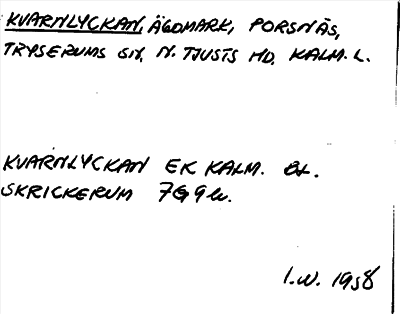 KVARNLYCKAN, ÄGOMARK, PORSNÄS,
TRYSERUMS SN, N. TJUSTS HD, KALM. L.
KVARNLYCKAN EK KALM. BL.
SKRICKERUM 7G9h.
I.W. 1958